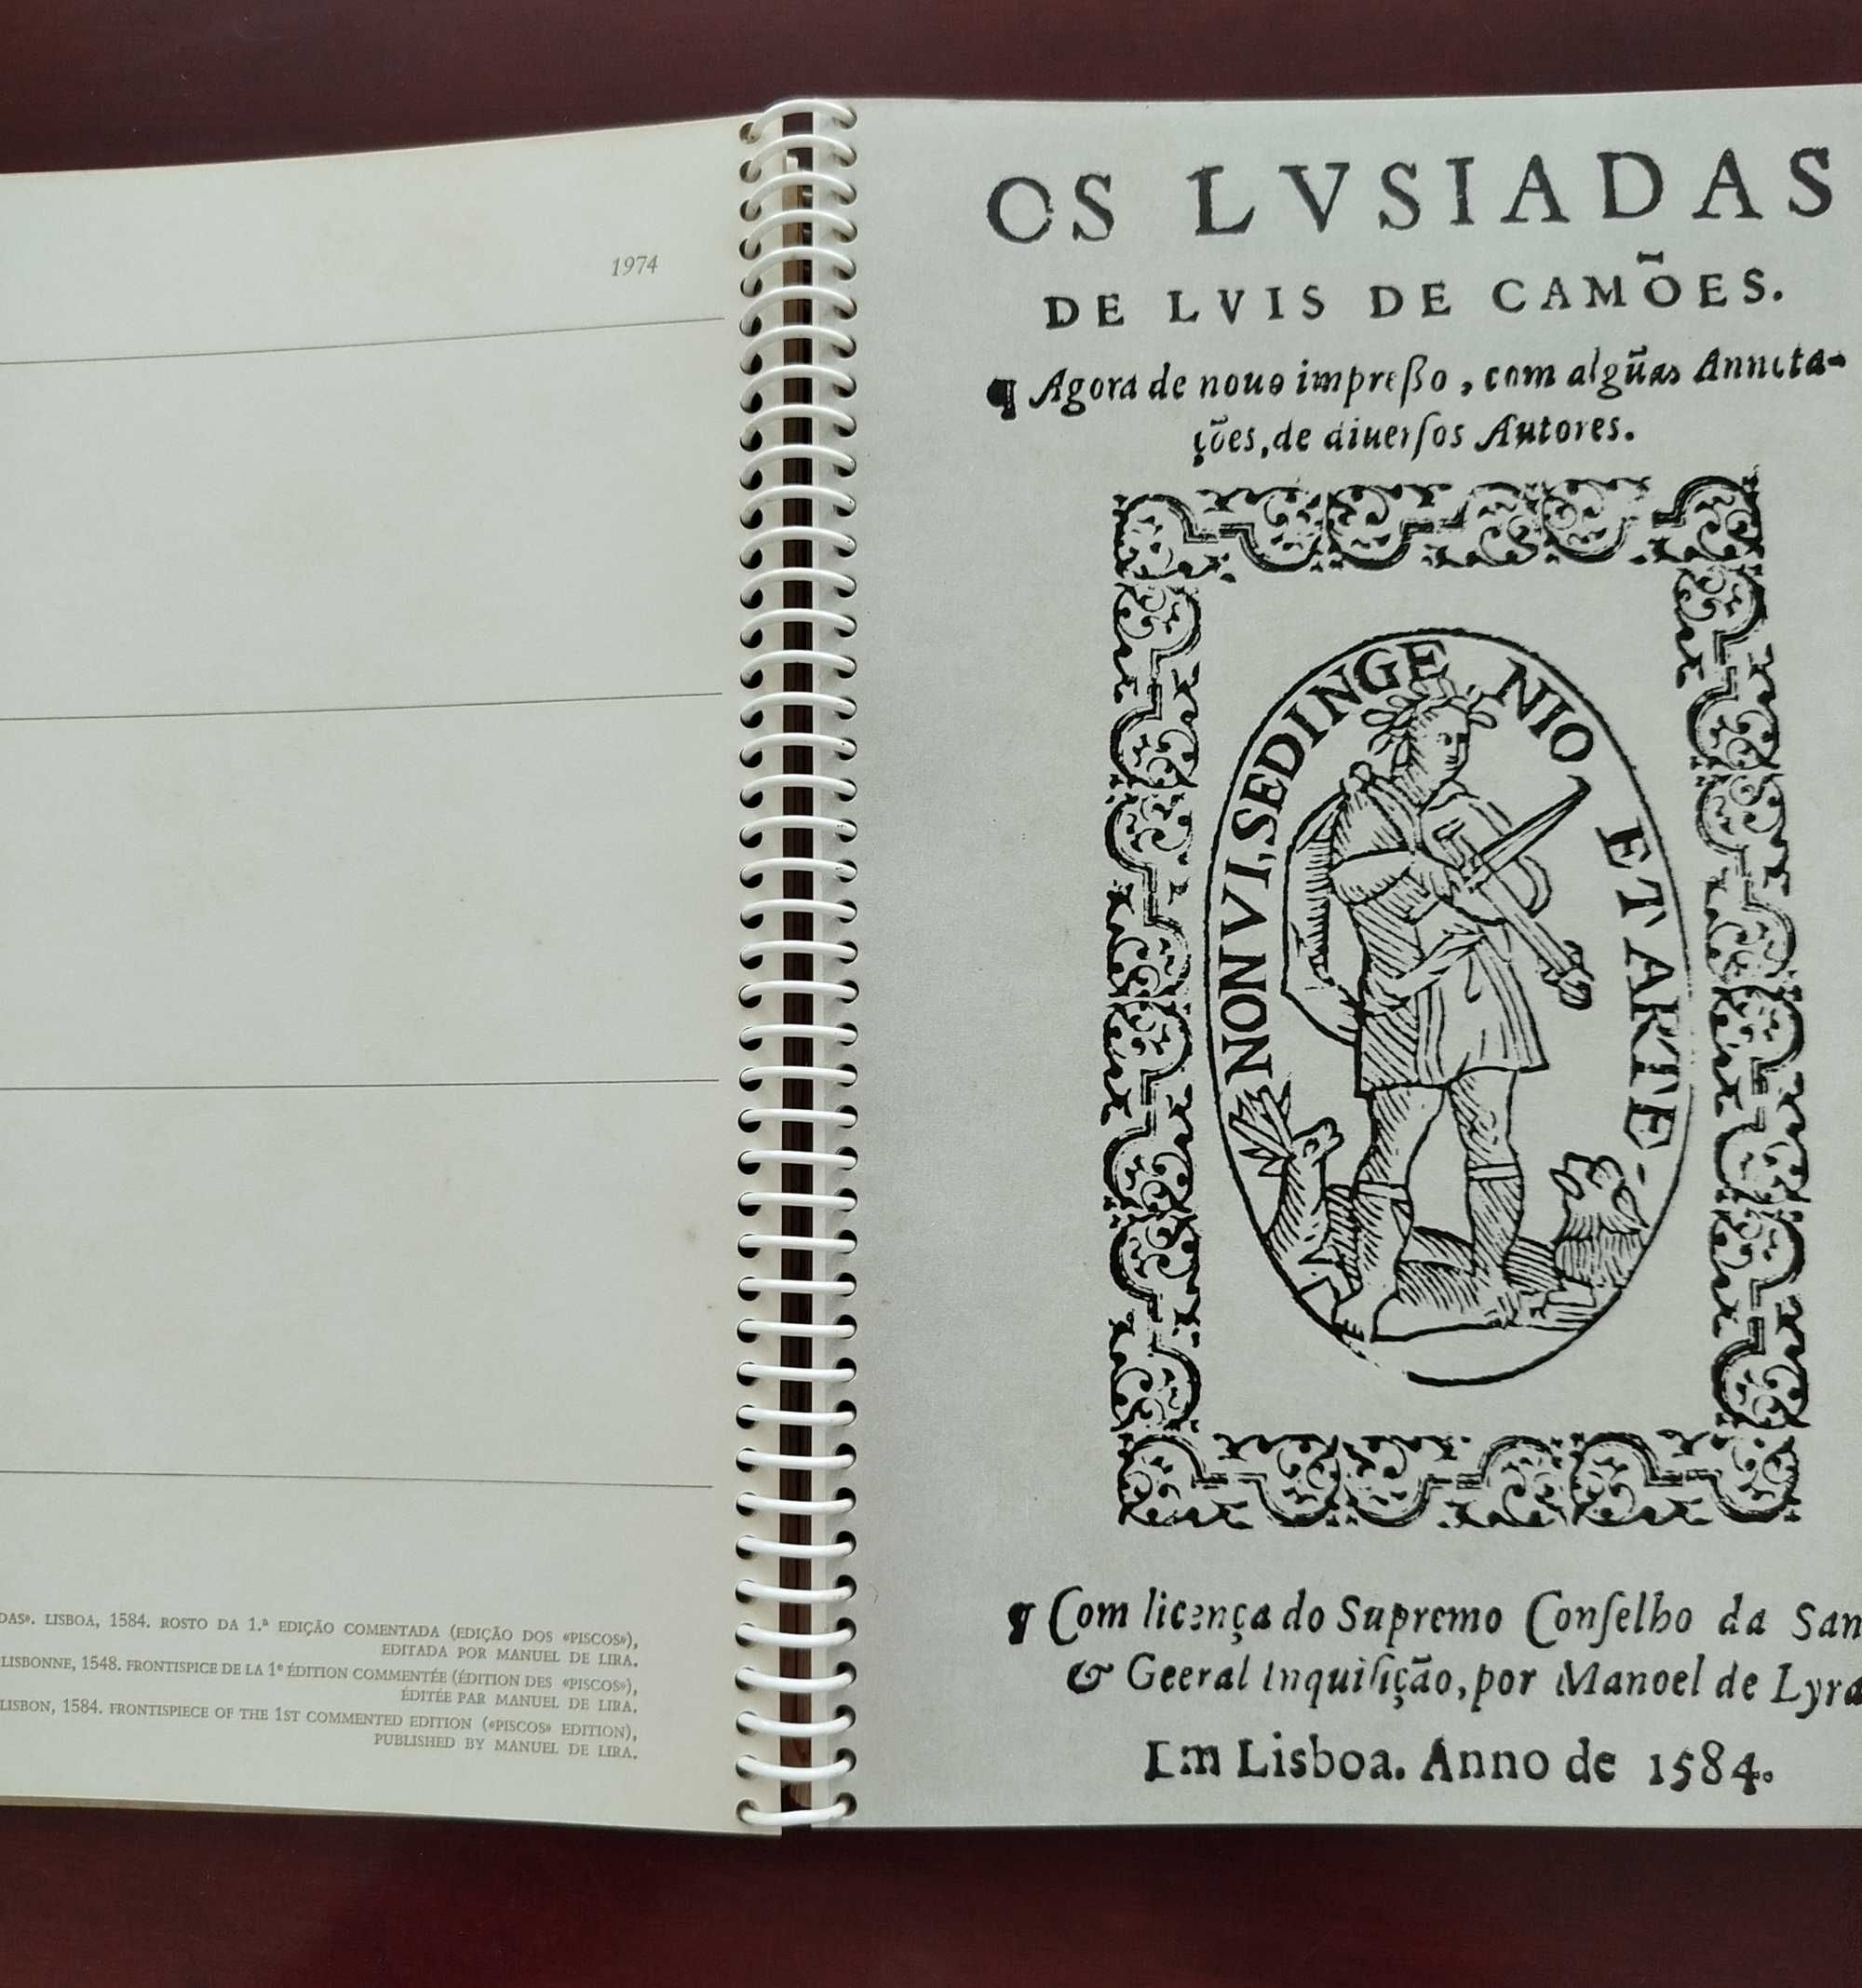 1974
DAS». LISBOA, 1584. ROSTO DA 1.ª EDIÇÃO COMENTADA (EDIÇÃO DOS «PISCOS»),
EDITADA POR MANUEL DE LIRA.
LISBONNE, 1548. FRONTISPICE DE LA 1ᵉ ÉDITION COMMENTÉE (ÉDITION DES «PISCOS»),
ÉDITÉE PAR MANUEL DE LIRA.
LISBON, 1584. FRONTISPIECE OF THE 1ST COMMENTED EDITION («PISCOS» EDITION),
PUBLISHED BY MANUEL DE LIRA.
OS LVSIADAS
DE LVIS DE CAMÕES.
¶ Agora de nouo impreßo, com algũas Annota-
ções, de diuerſos Autores.
NON VI, SED INGE NIO ET ARTE
¶ Com licença do Supremo Conſelho da San
& Geeral Inquiſição, por Manoel de Lyra
Em Lisboa. Anno de 1584.